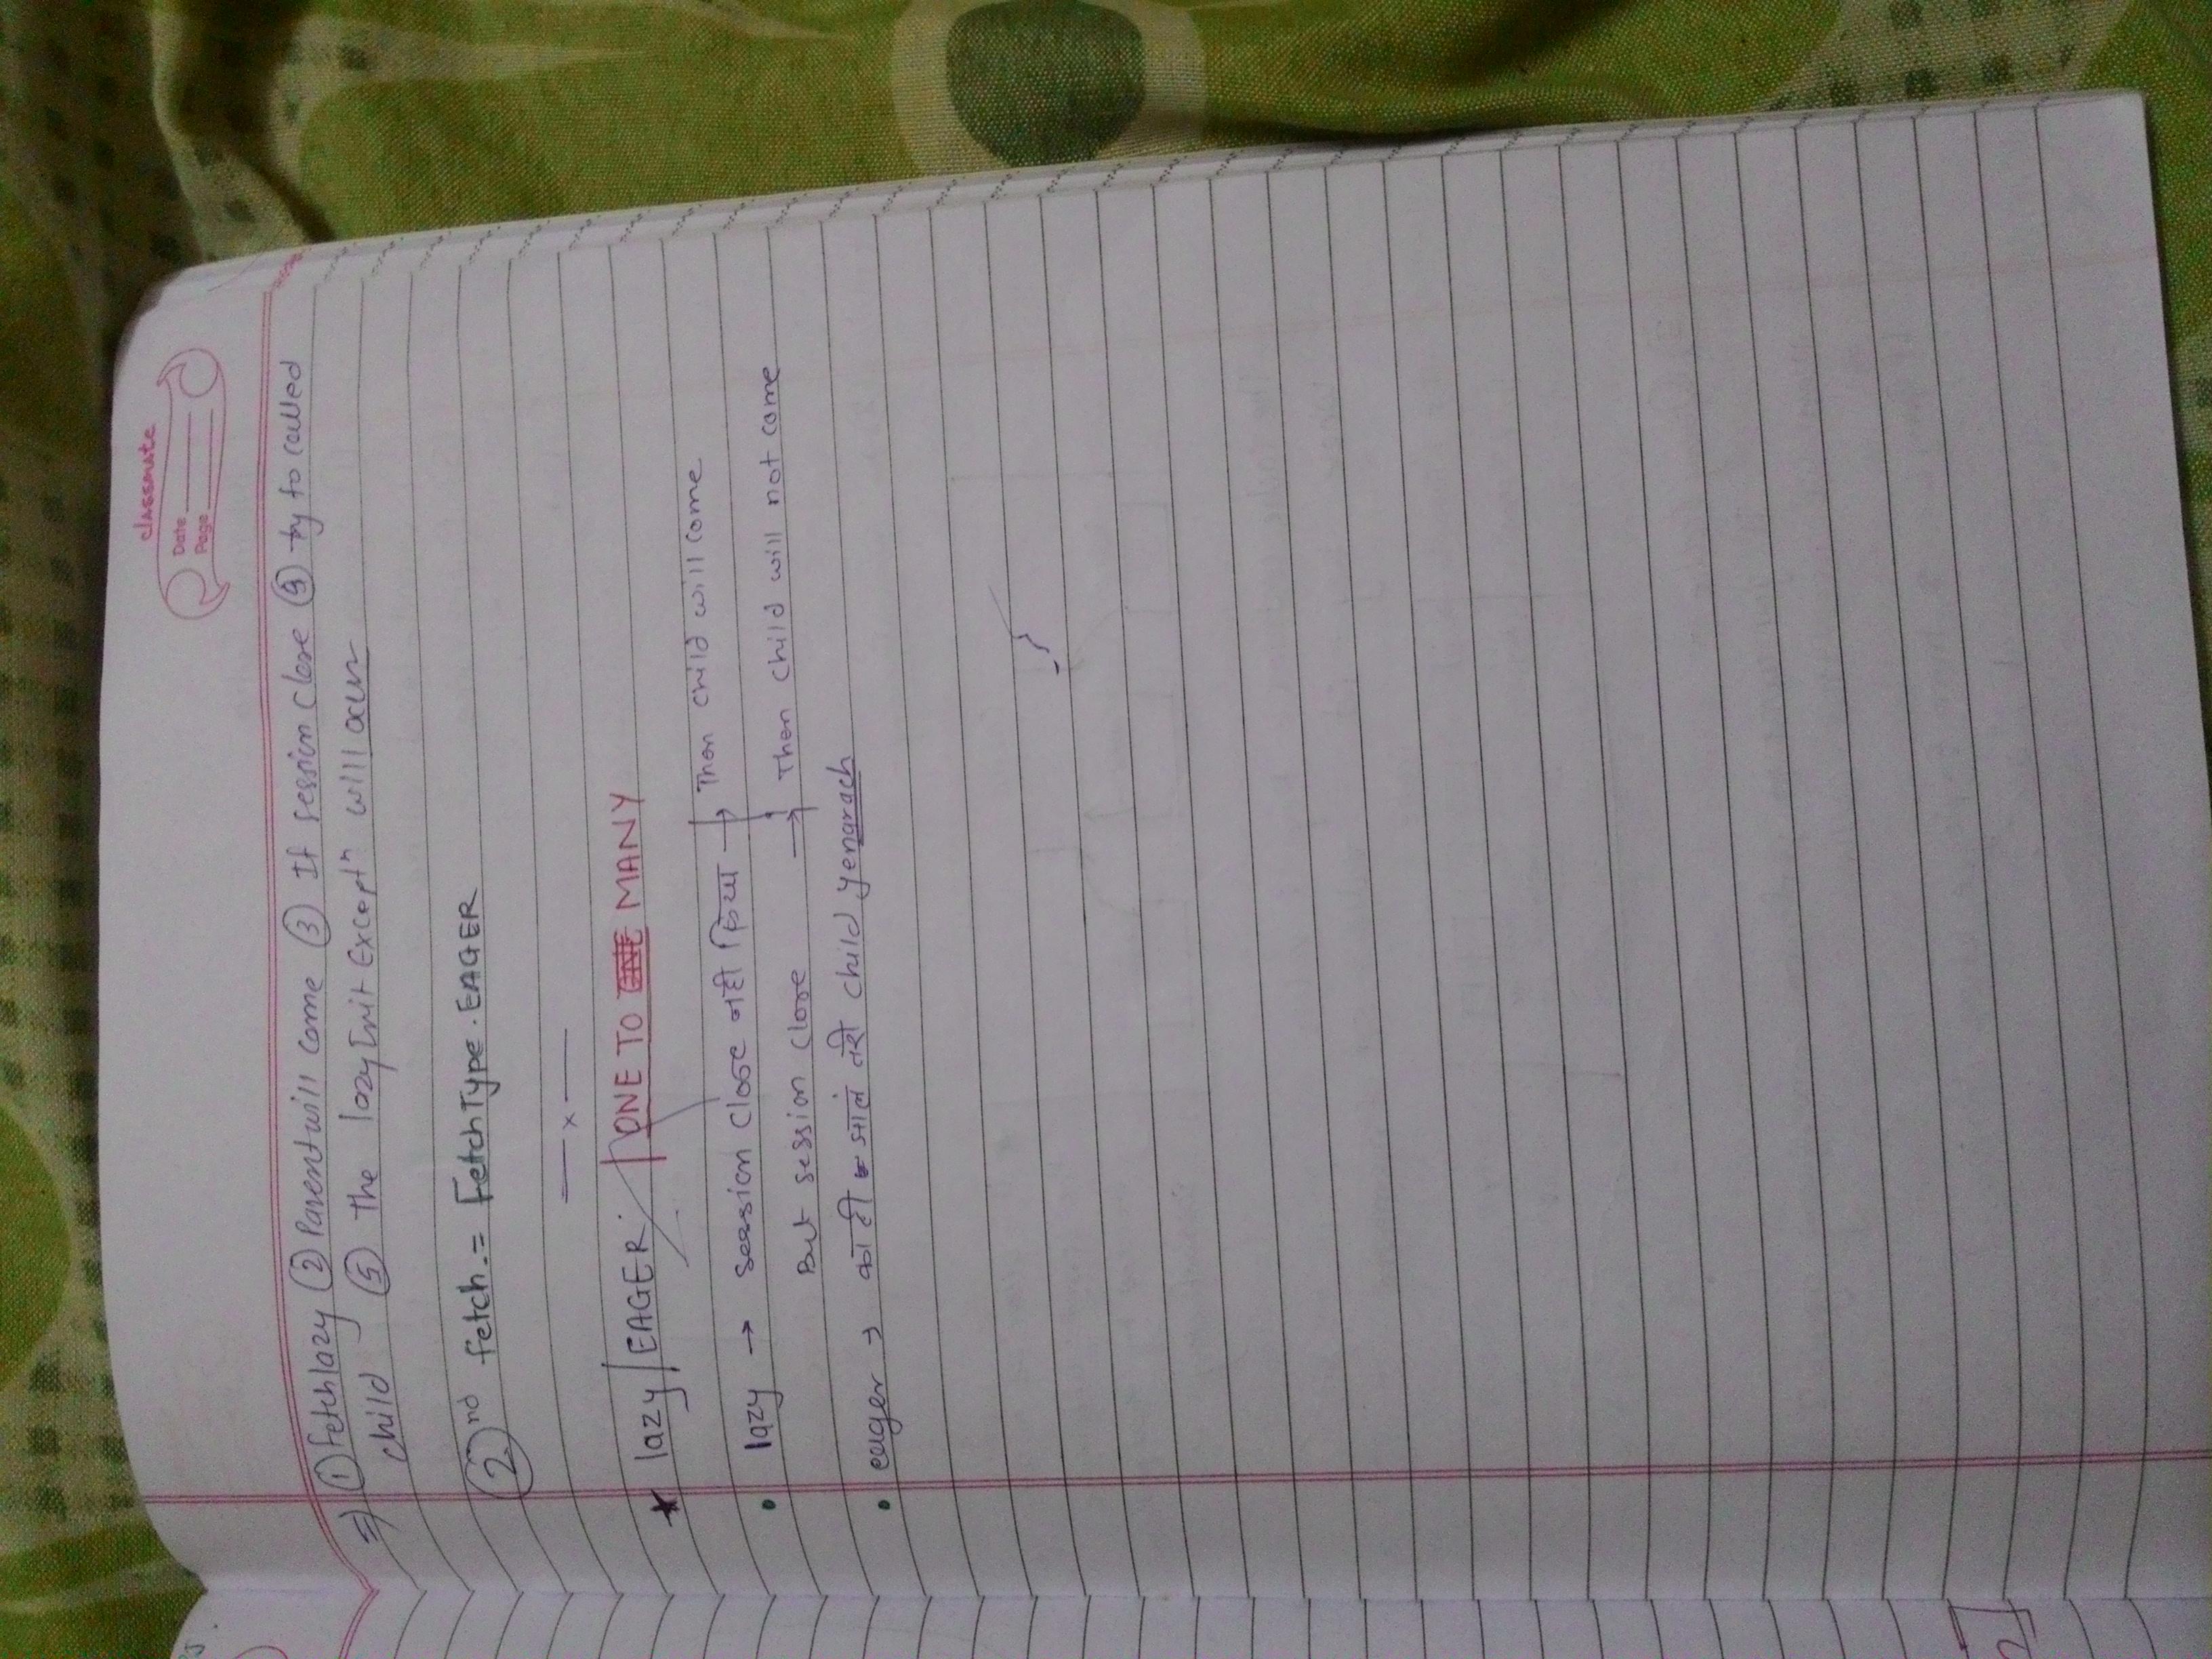 classmate
Date
Page
⇒ ① fetchlazy ② Parent will come ③ If session close ④ try to called
child ⑤ The lazyInit Exceptⁿ will occur
②nd fetch = FetchType.EAGER
— x —
★ lazy/EAGER | ONE TO MANY
• lazy → session close नही किया → Then child will come
But session close → Then child will not come
• eager → काही झालं तरी child yenarach